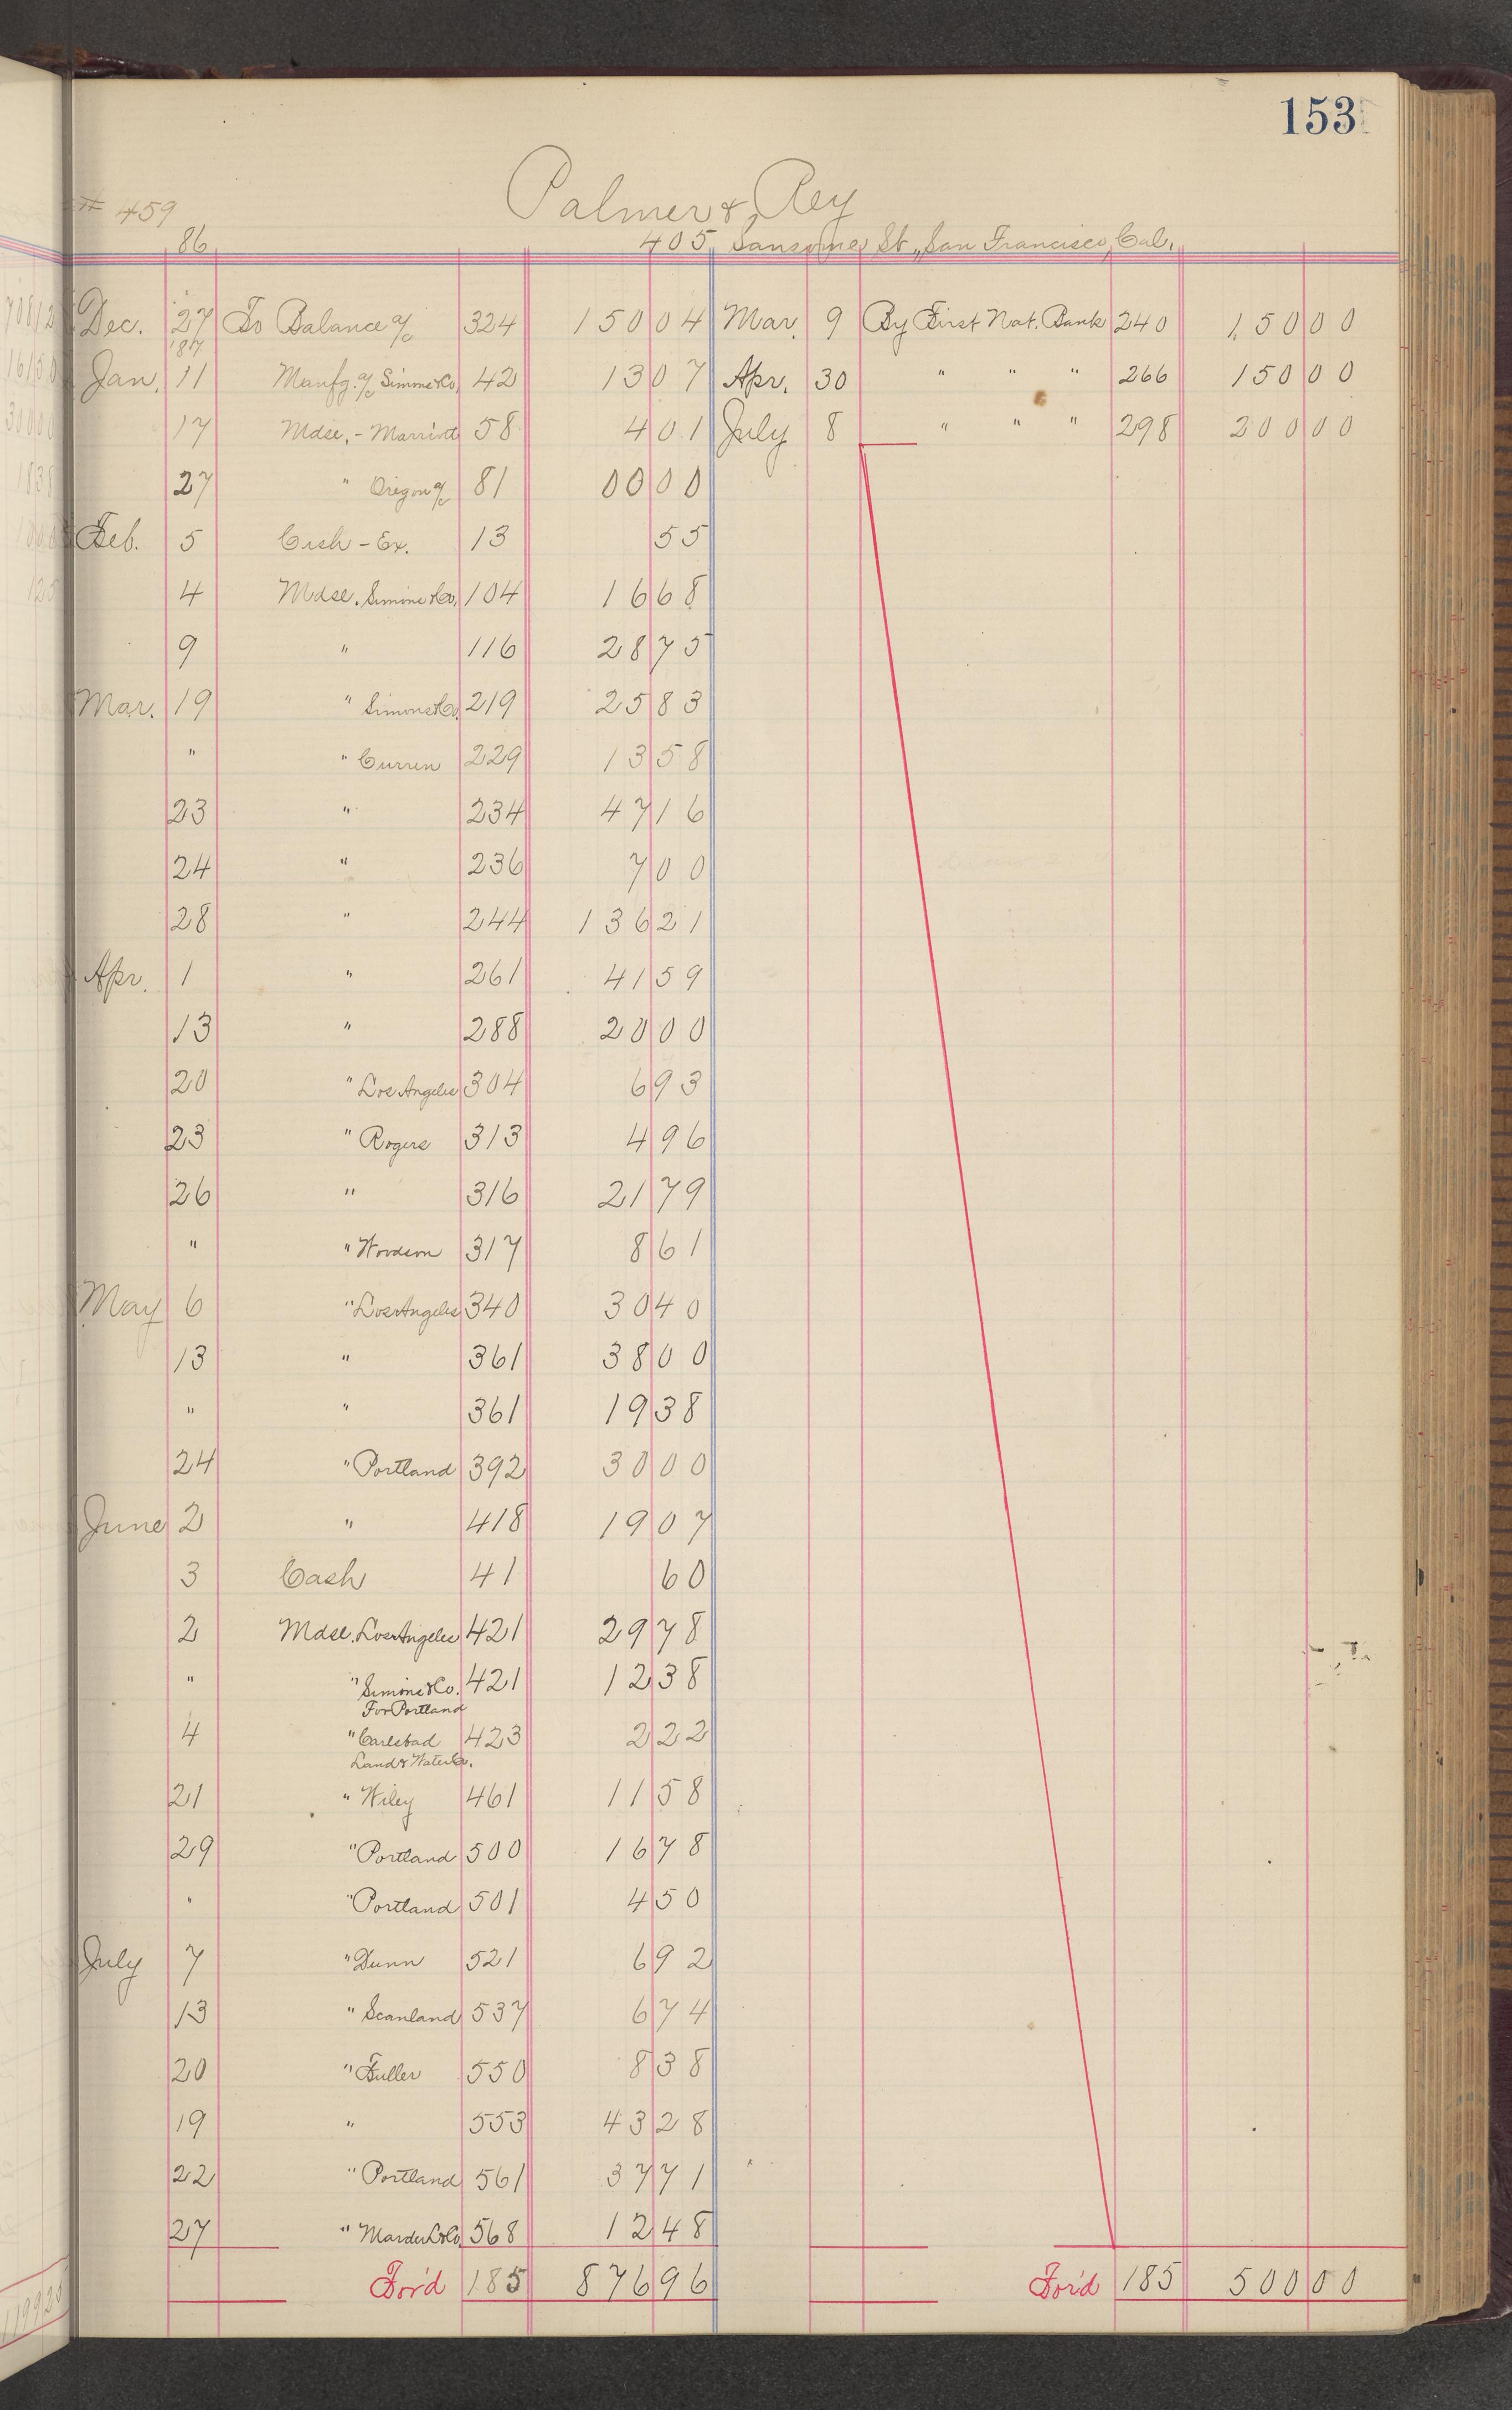 153
Palmer & Rey
# 459
86 405 Sansome St., San Francisco, Cal.
Dec. 27 To Balance a/c 324 150 04 Mar. 9 By First Nat. Bank 240 150 00
'87
Jan. 11 Manfg. a/c Simons & Co. 42 13 07 Apr. 30 " " " 266 150 00
17 Mdse. - Marriott 58 4 01 July 8 " " " 298 200 00
27 " Oregon a/c 81 00 00
Feb. 5 Cash - Ex. 13 55
4 Mdse. Simons & Co. 104 16 68
9 " 116 28 75
Mar. 19 " Simons & Co. 219 25 83
" " Curren 229 13 58
23 " 234 47 16
24 " 236 7 00
28 " 244 136 21
Apr. 1 " 261 41 59
13 " 288 20 00
20 " Los Angeles 304 6 93
23 " Rogers 313 4 96
26 " 316 21 79
" " 317 8 61
May 6 " Los Angeles 340 30 40
13 " 361 38 00
" " 361 19 38
24 " Portland 392 30 00
June 2 " 418 19 07
3 Cash 41 60
2 Mdse. Los Angeles 421 29 78
" " Simons & Co. 421 12 38
For Portland
4 " Carlsbad 423 2 22
Land & Water Co.
21 " Wiley 461 11 58
29 " Portland 500 16 78
" " Portland 501 4 50
July 7 " Dunn 521 6 92
13 " Scanland 537 6 74
20 " Fuller 550 8 38
19 " 553 43 28
22 " Portland 561 37 71
27 " Marder L & Co. 568 12 48
For'd 185 876 96 For'd 185 500 00